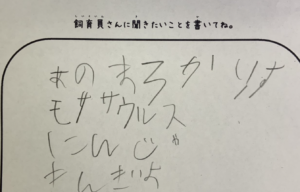 飼育員さんに聞きたいことを書いてね。
あのまろかりす
モササウルス
にんじゃ
きんぎょ